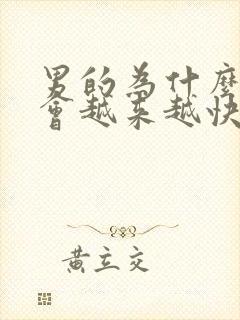 男的為什麼
會越來越快
黃立交